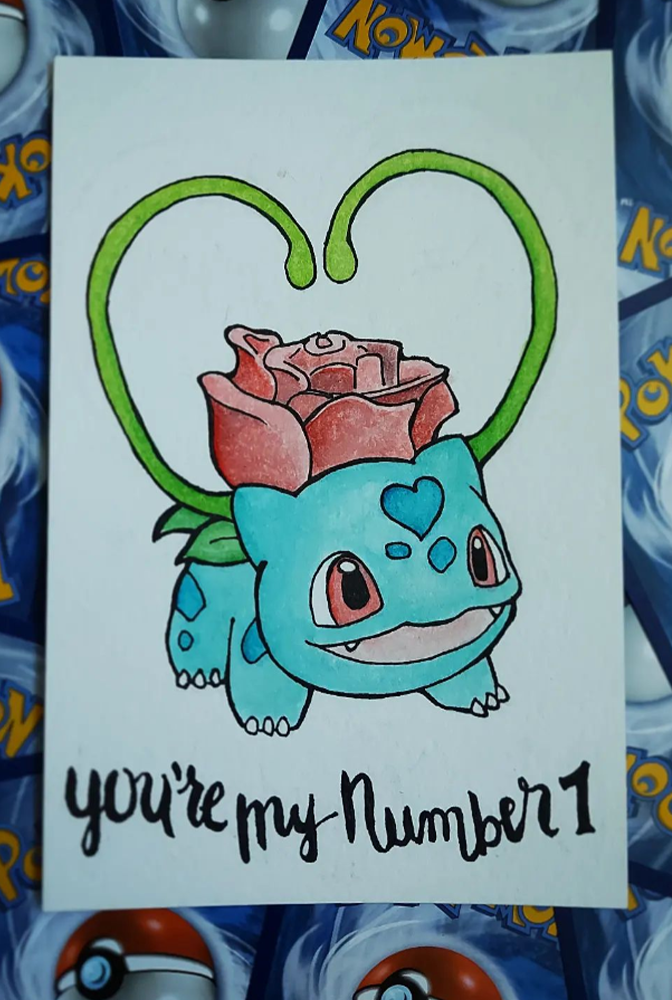 you're my Number 1